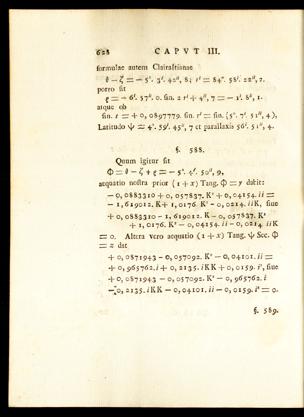 628 CAPVT III.
formulae autem Clairaltianae
θ − ζ = − 5°. 3'. 42'', 8; r' = 84°. 58'. 22'', 2.
porro sit
ϱ = − 6'. 57''. 0. sin. 2 r' + 4'', 7 = − 1'. 8'', 1.
atque ob
sin. ι = + 0, 0897779. sin. r' = sin. (5°. 7'. 51'', 4),
Latitudo ψ = 4°. 59'. 45'', 7 et parallaxis 56'. 51'', 4.
§. 588.
Quum igitur sit
Φ = θ − ζ + ϱ = − 5°. 4'. 50'', 9,
aequatio nostra prior (1 + x) Tang. Φ = y dabit:
− 0, 0883310 + 0, 057837. K² + 0, 04154. ii =
− 1, 619012. K + 1, 0176. K² − 0, 0214. iiK, siue
+ 0, 0883310 − 1, 619012. K − 0, 057837. K²
+ 1, 0176. K² − 0, 04154. ii − 0, 0214. iiK
= 0. Altera vero aequatio (1 + x) Tang. ψ Sec. Φ
= z dat
+ 0, 0871943 − 0, 057092. K² − 0, 04101. ii =
+ 0, 965762. i + 0, 2135. iKK + 0, 0159. i³, siue
+ 0, 0871943 − 0, 057092. K² − 0, 965762. i
− 0, 2135. iKK − 0, 04101. ii − 0, 0159. i³ = 0.
§. 589.